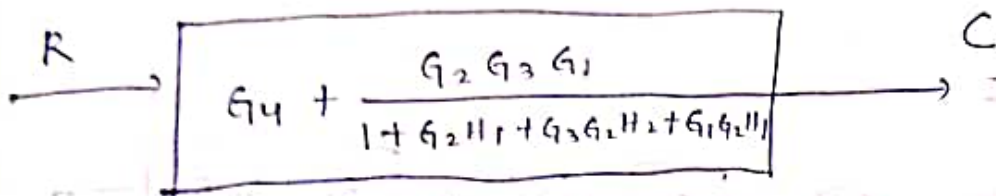 R
C
G4 + G2 G3 G1
1 + G2H1 + G3G2H2 + G1G2H1